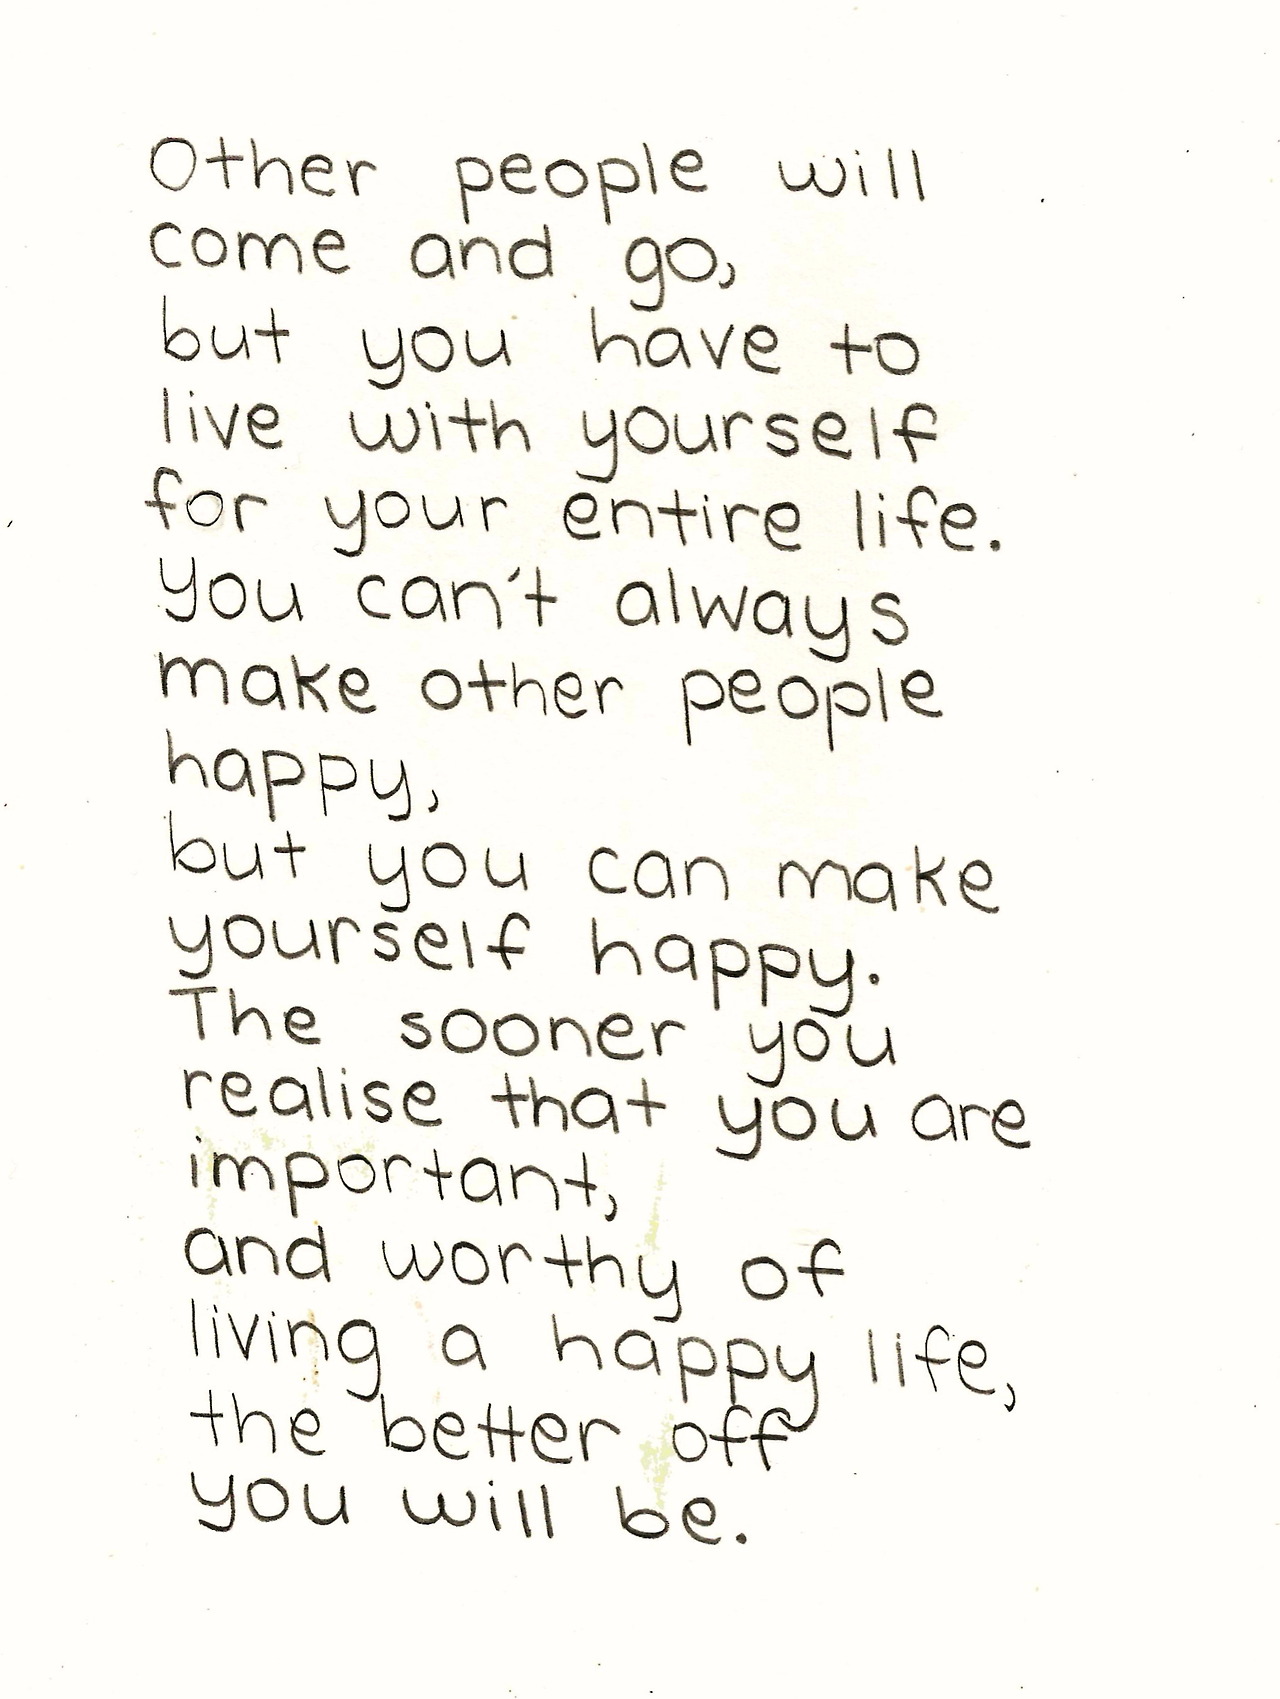 Other people will
come and go,
but you have to
live with yourself
for your entire life.
you can't always
make other people
happy,
but you can make
yourself happy.
The sooner you
realise that you are
important,
and worthy of
living a happy life,
the better off
you will be.